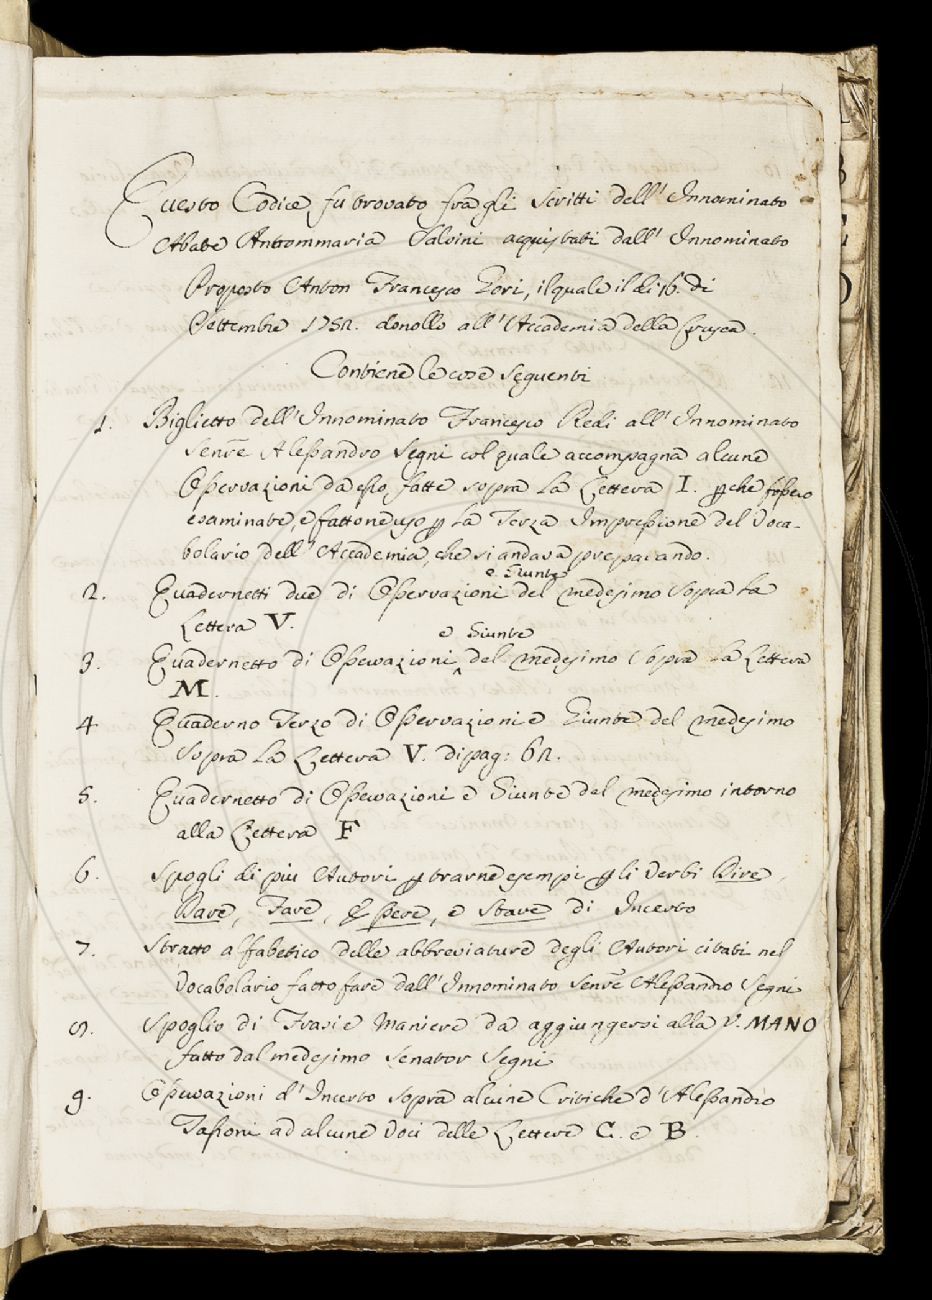 Questo Codice fu trovato fra gli Scritti dell' Innominato
Abate Antommaria Salvini acquistati dall' Innominato
Proposto Anton Francesco Gori, il quale il dì 16. di
Settembre 1752. donollo all' Accademia della Crusca.
Contiene le cose seguenti
1. Biglietto dell' Innominato Francesco Redi all' Innominato
Senre Alessandro Segni col quale accompagna alcune
Osservazioni da esso fatte sopra la Lettera I. pche fossero
esaminate, e fattone uso p la Terza Impressione del Voca-
bolario dell' Accademia, che si andava preparando.
e Giunte
2. Quadernetti due di Osservazioni del medesimo Sopra la
Lettera V.
e Giunte
3. Quadernetto di Osservazioni ^ del medesimo Sopra la Lettera
M.
4. Quaderno Terzo di Osservazioni e Giunte del medesimo
Sopra la Lettera V. di pag: 62.
5. Quadernetto di Osservazioni e Giunte del medesimo intorno
alla Lettera F
6. Spogli di più Autori p trarne esempi p li Verbi Dire,
Dare, Fare, Essere, e Stare di Incerto
7. Stratto alfabetico delle abbreviature degli Autori citati nel
Vocabolario fatto fare dall' Innominato Senre Alessandro Segni
8. Spoglio di Frasi e Maniere da aggiungersi alla V. MANO
fatto dal medesimo Senator Segni
9. Osservazioni d' Incerto Sopra alcune Critiche d' Alessandro
Tassoni ad alcune Voci delle Lettere C. e B.